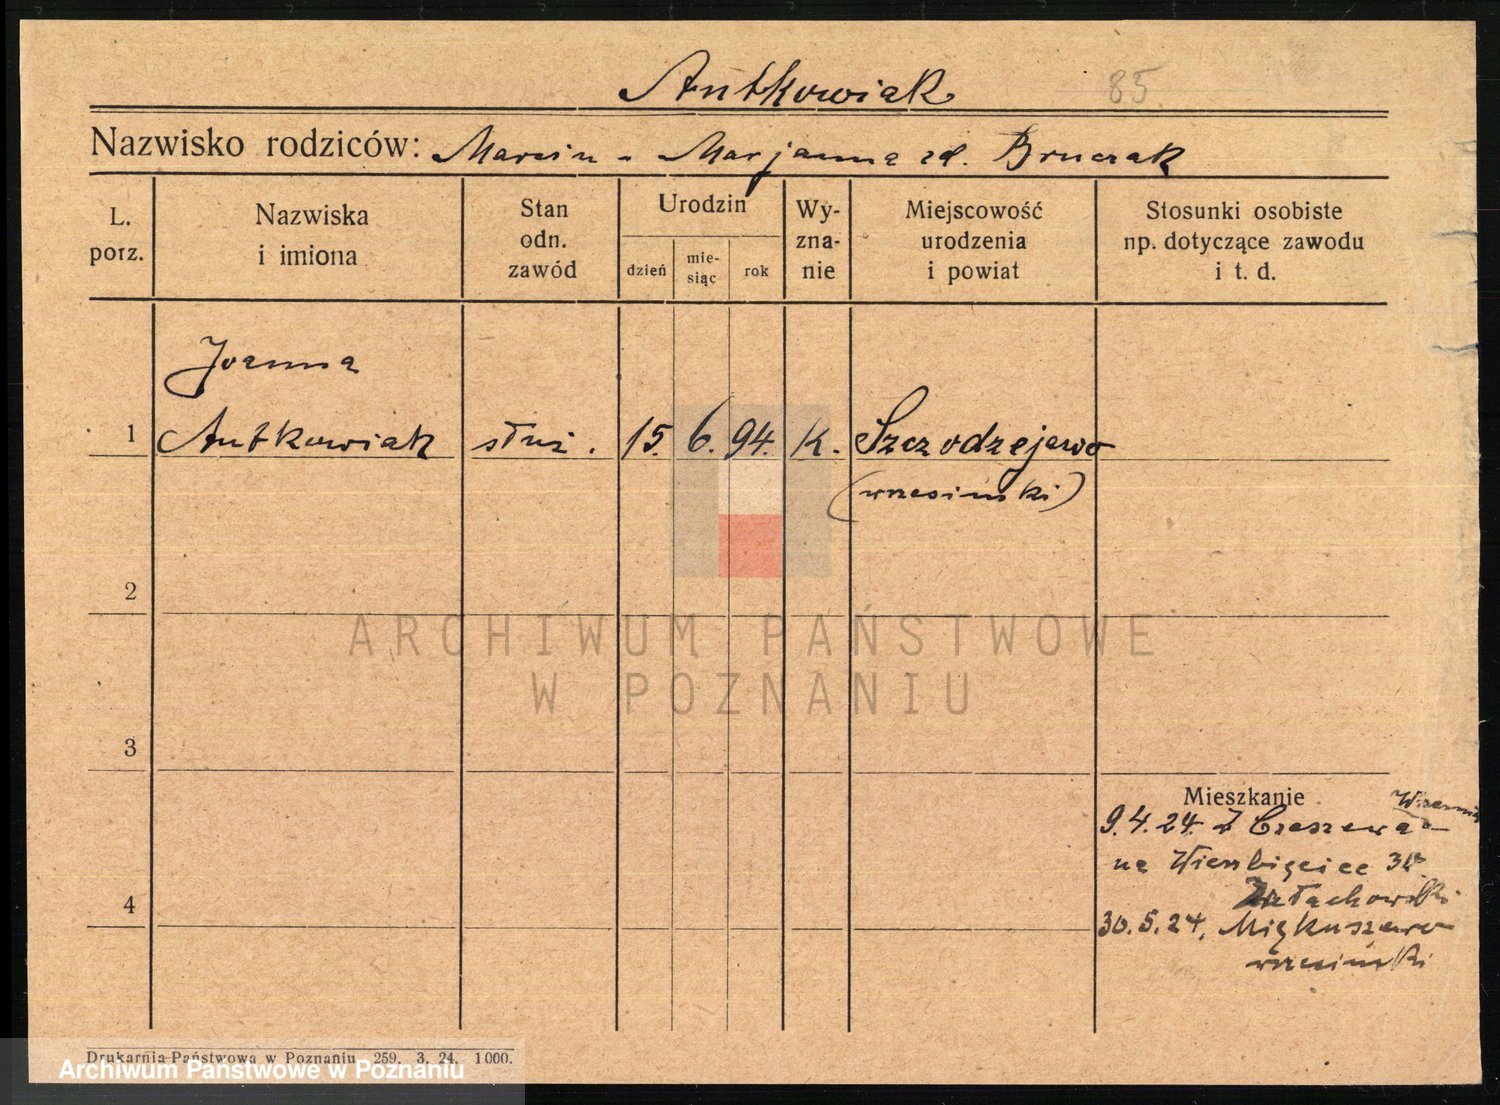 Antkowiak 85
Nazwisko rodziców: Marcin - Marjanna zd. Bruczak
L. porz.
Nazwiska i imiona
Stan odn. zawód
Urodzin
dzień
mie-siąc
rok
Wy-zna-nie
Miejscowość urodzenia i powiat
Stosunki osobiste np. dotyczące zawodu i t. d.
Joanna
1 Antkowiak służ. 15. 6. 94. K. Szczodrzejewo
(wrzesiński)
2
ARCHIWUM PAŃSTWOWE
W POZNANIU
3
Mieszkanie
9.4.24. z Czeszewa
na Wierzbięcice
4
30.5.24,
wrzesiński
Drukarnia Państwowa w Poznaniu 259. 3. 24. 1000.
Archiwum Państwowe w Poznaniu